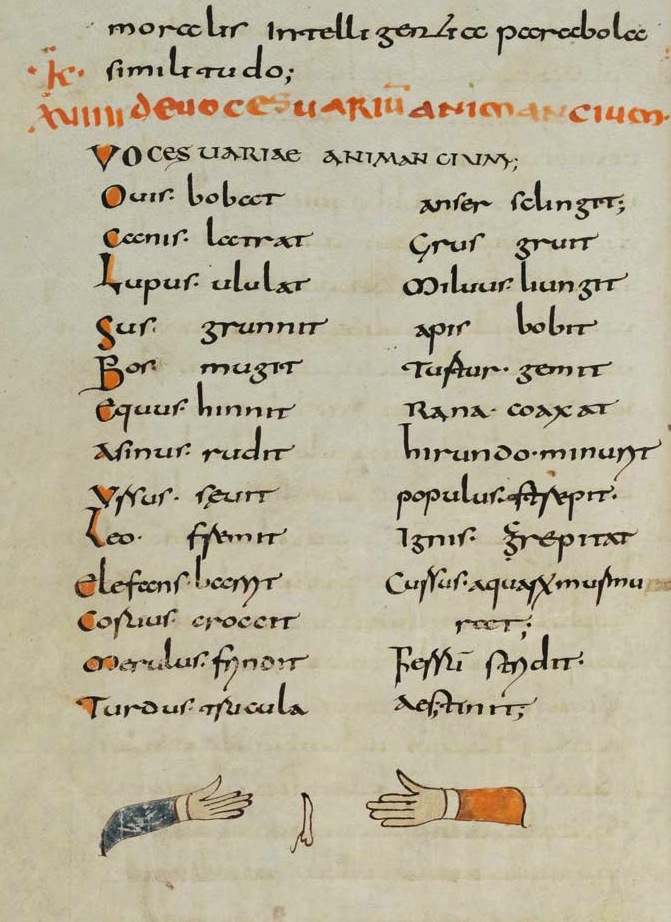 moralis Intelligentiae parabolae
similitudo;
XVIIII de uoces uariū animancium.
Voces uariae animancium;
Ouis. bobat
Canis. latrat
Lupus. ululat
Sus. grunnit
Bos mugit
Equus. hinnit
Asinus. rudit
Vrsus. seuit
Leo. fremit
Elefans. barrit
Coruus crocit
Merulus. frindit
Turdus. trucula
anser sclingit;
Grus gruit
Miluus. liungit
apis bobit
Turtur. gemit
Rana. coaxat
hirundo. minurrit
populus. strepit.
Ignis. crepitat
Cursus. aquarum murmu
rat;
Ferrū stridit.